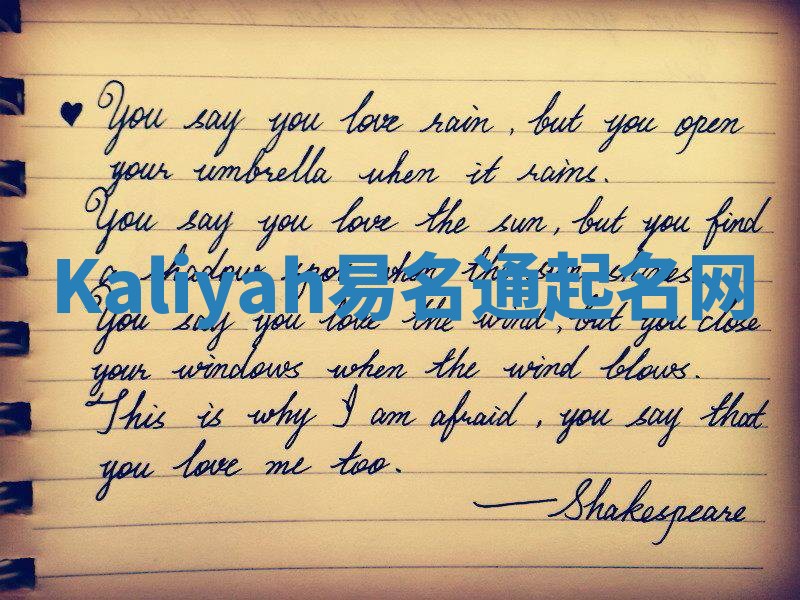 ♥ You say you love rain, but you open
your umbrella when it rains.
You say you love the sun, but you find
a shadow spot when the sun shines.
Kaliyah易名通起名网
You say you love the wind, but you close
your windows when the wind blows.
This is why I am afraid, you say that
you love me too.
—Shakespeare